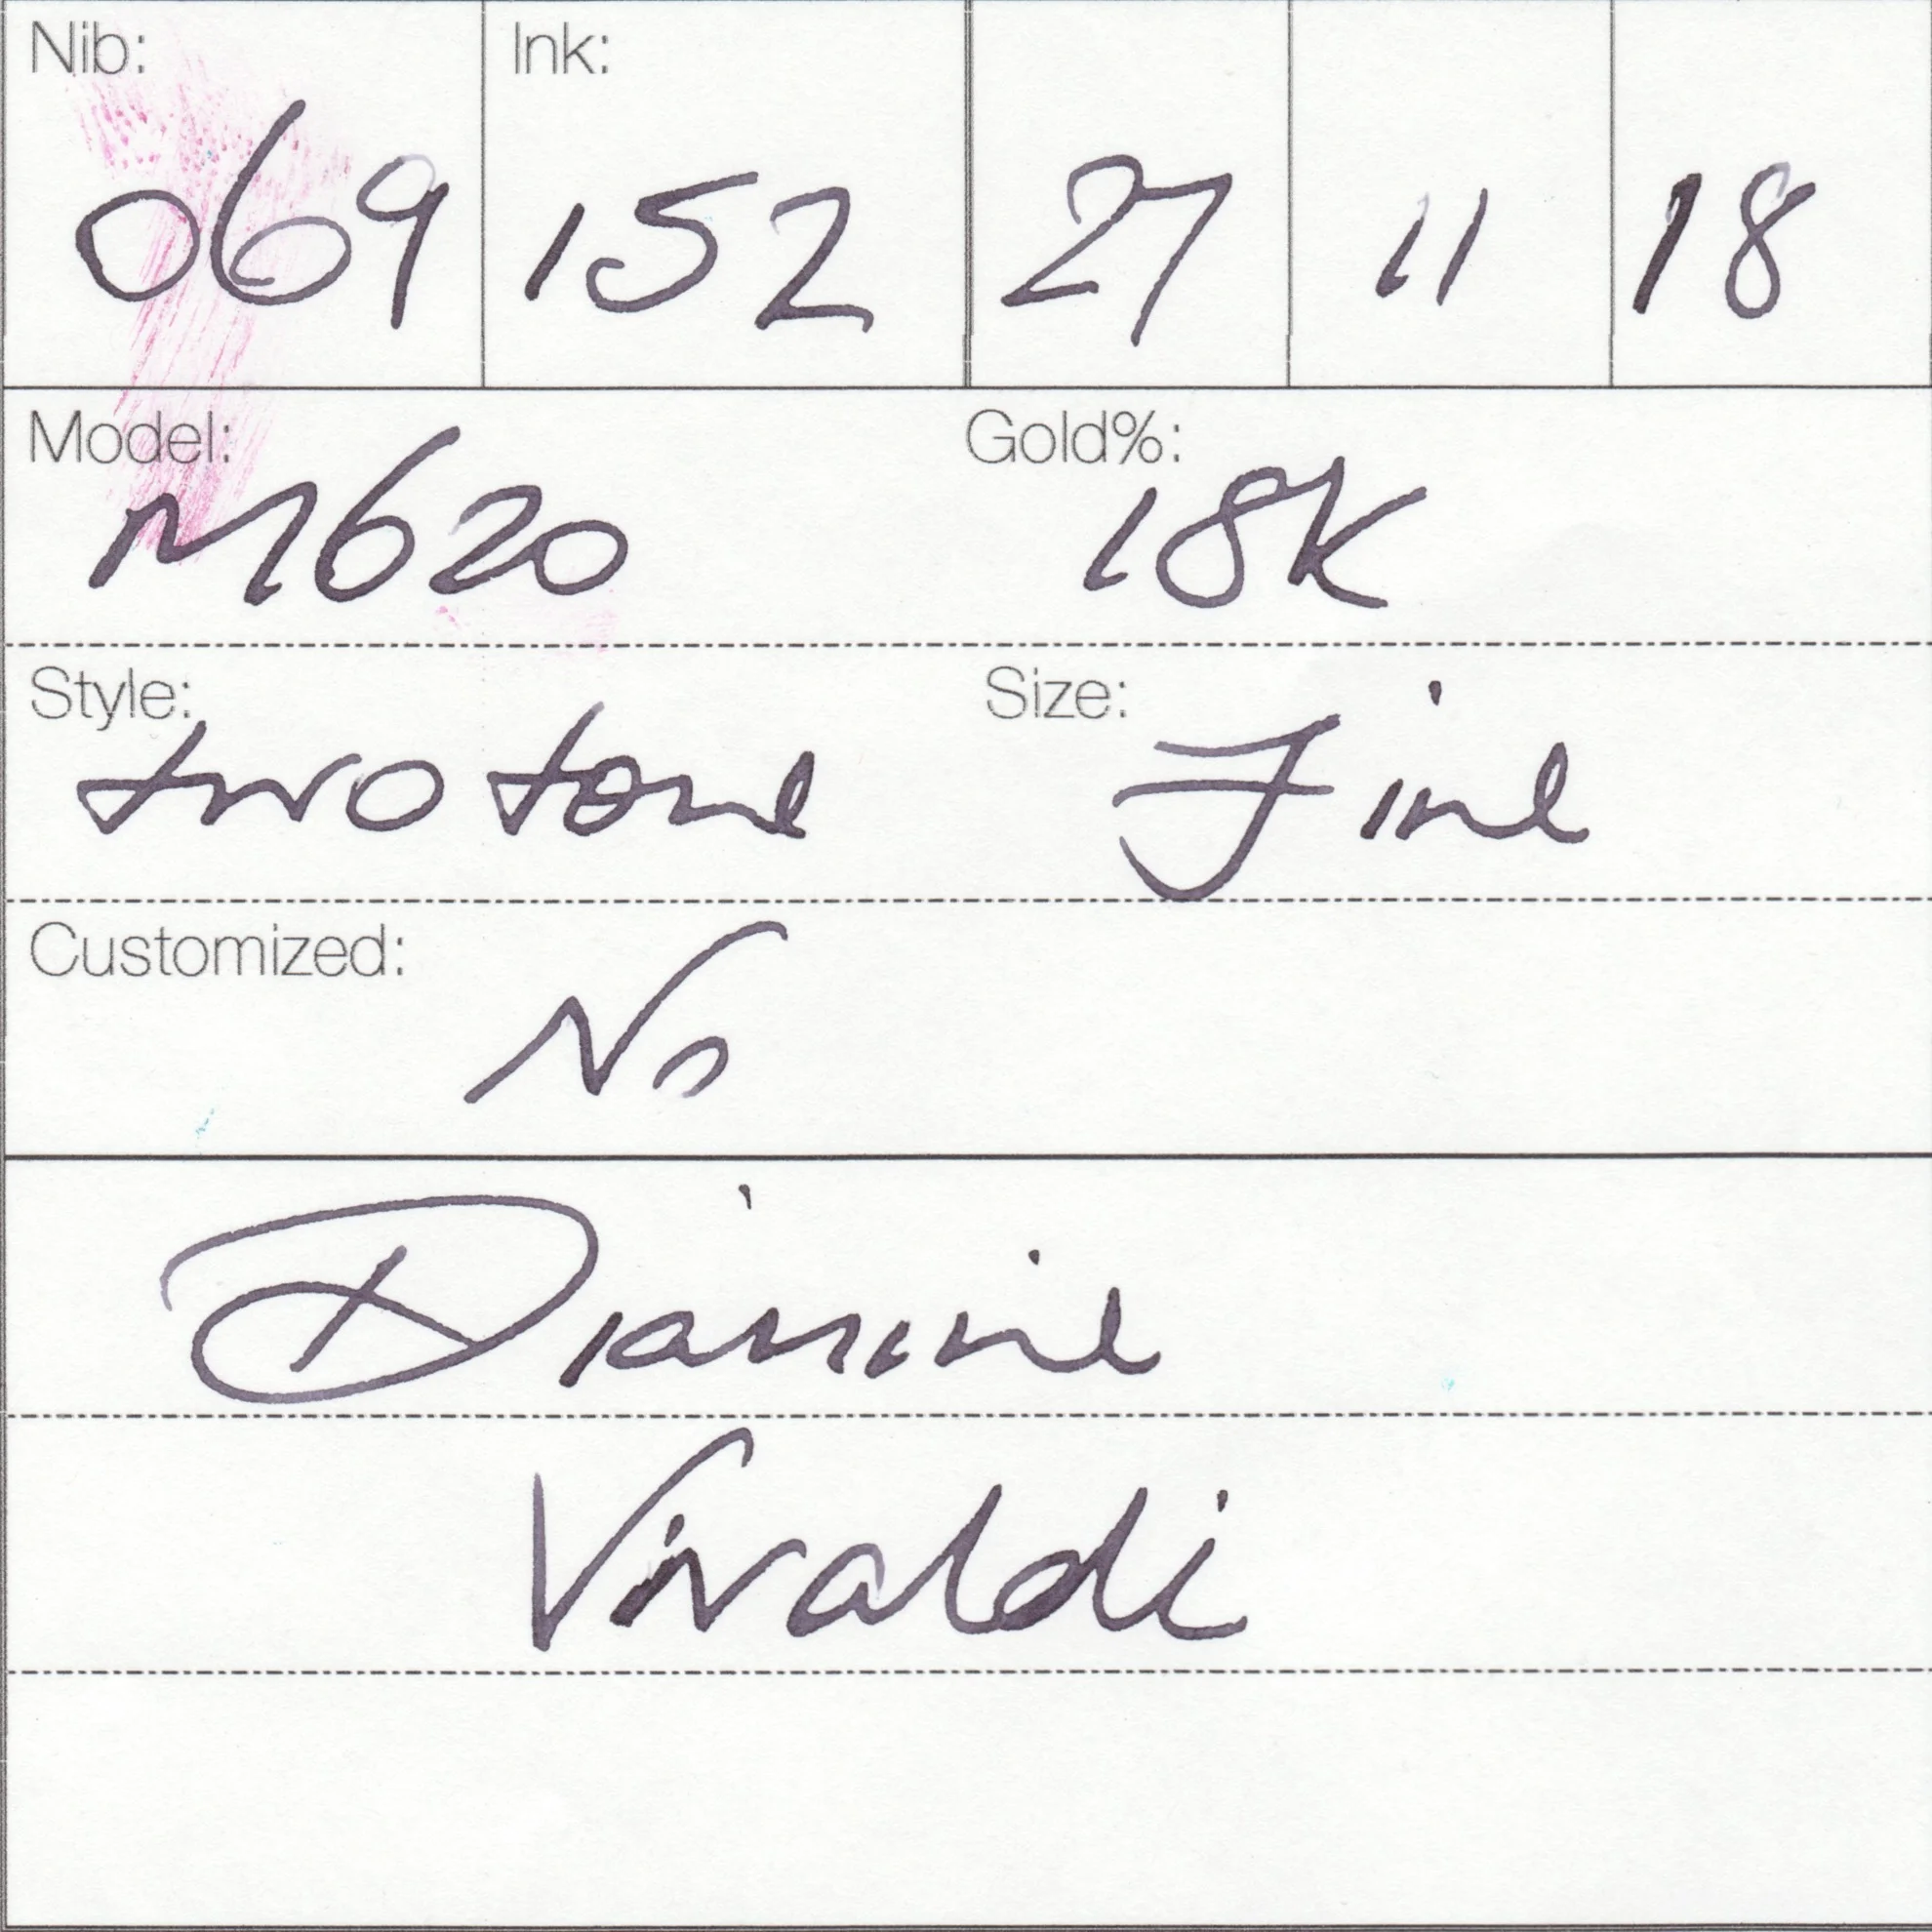 Nib: Ink:
069 152 27 11 18
Model: Gold%:
M620 18K
Style: Size:
two tone Fine
Customized:
No
Diamine
Vivaldi